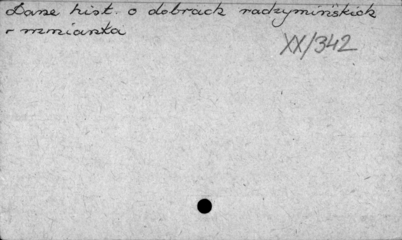 Dane hist. o dobrach radzymińskich
- wzmianka
XX/342